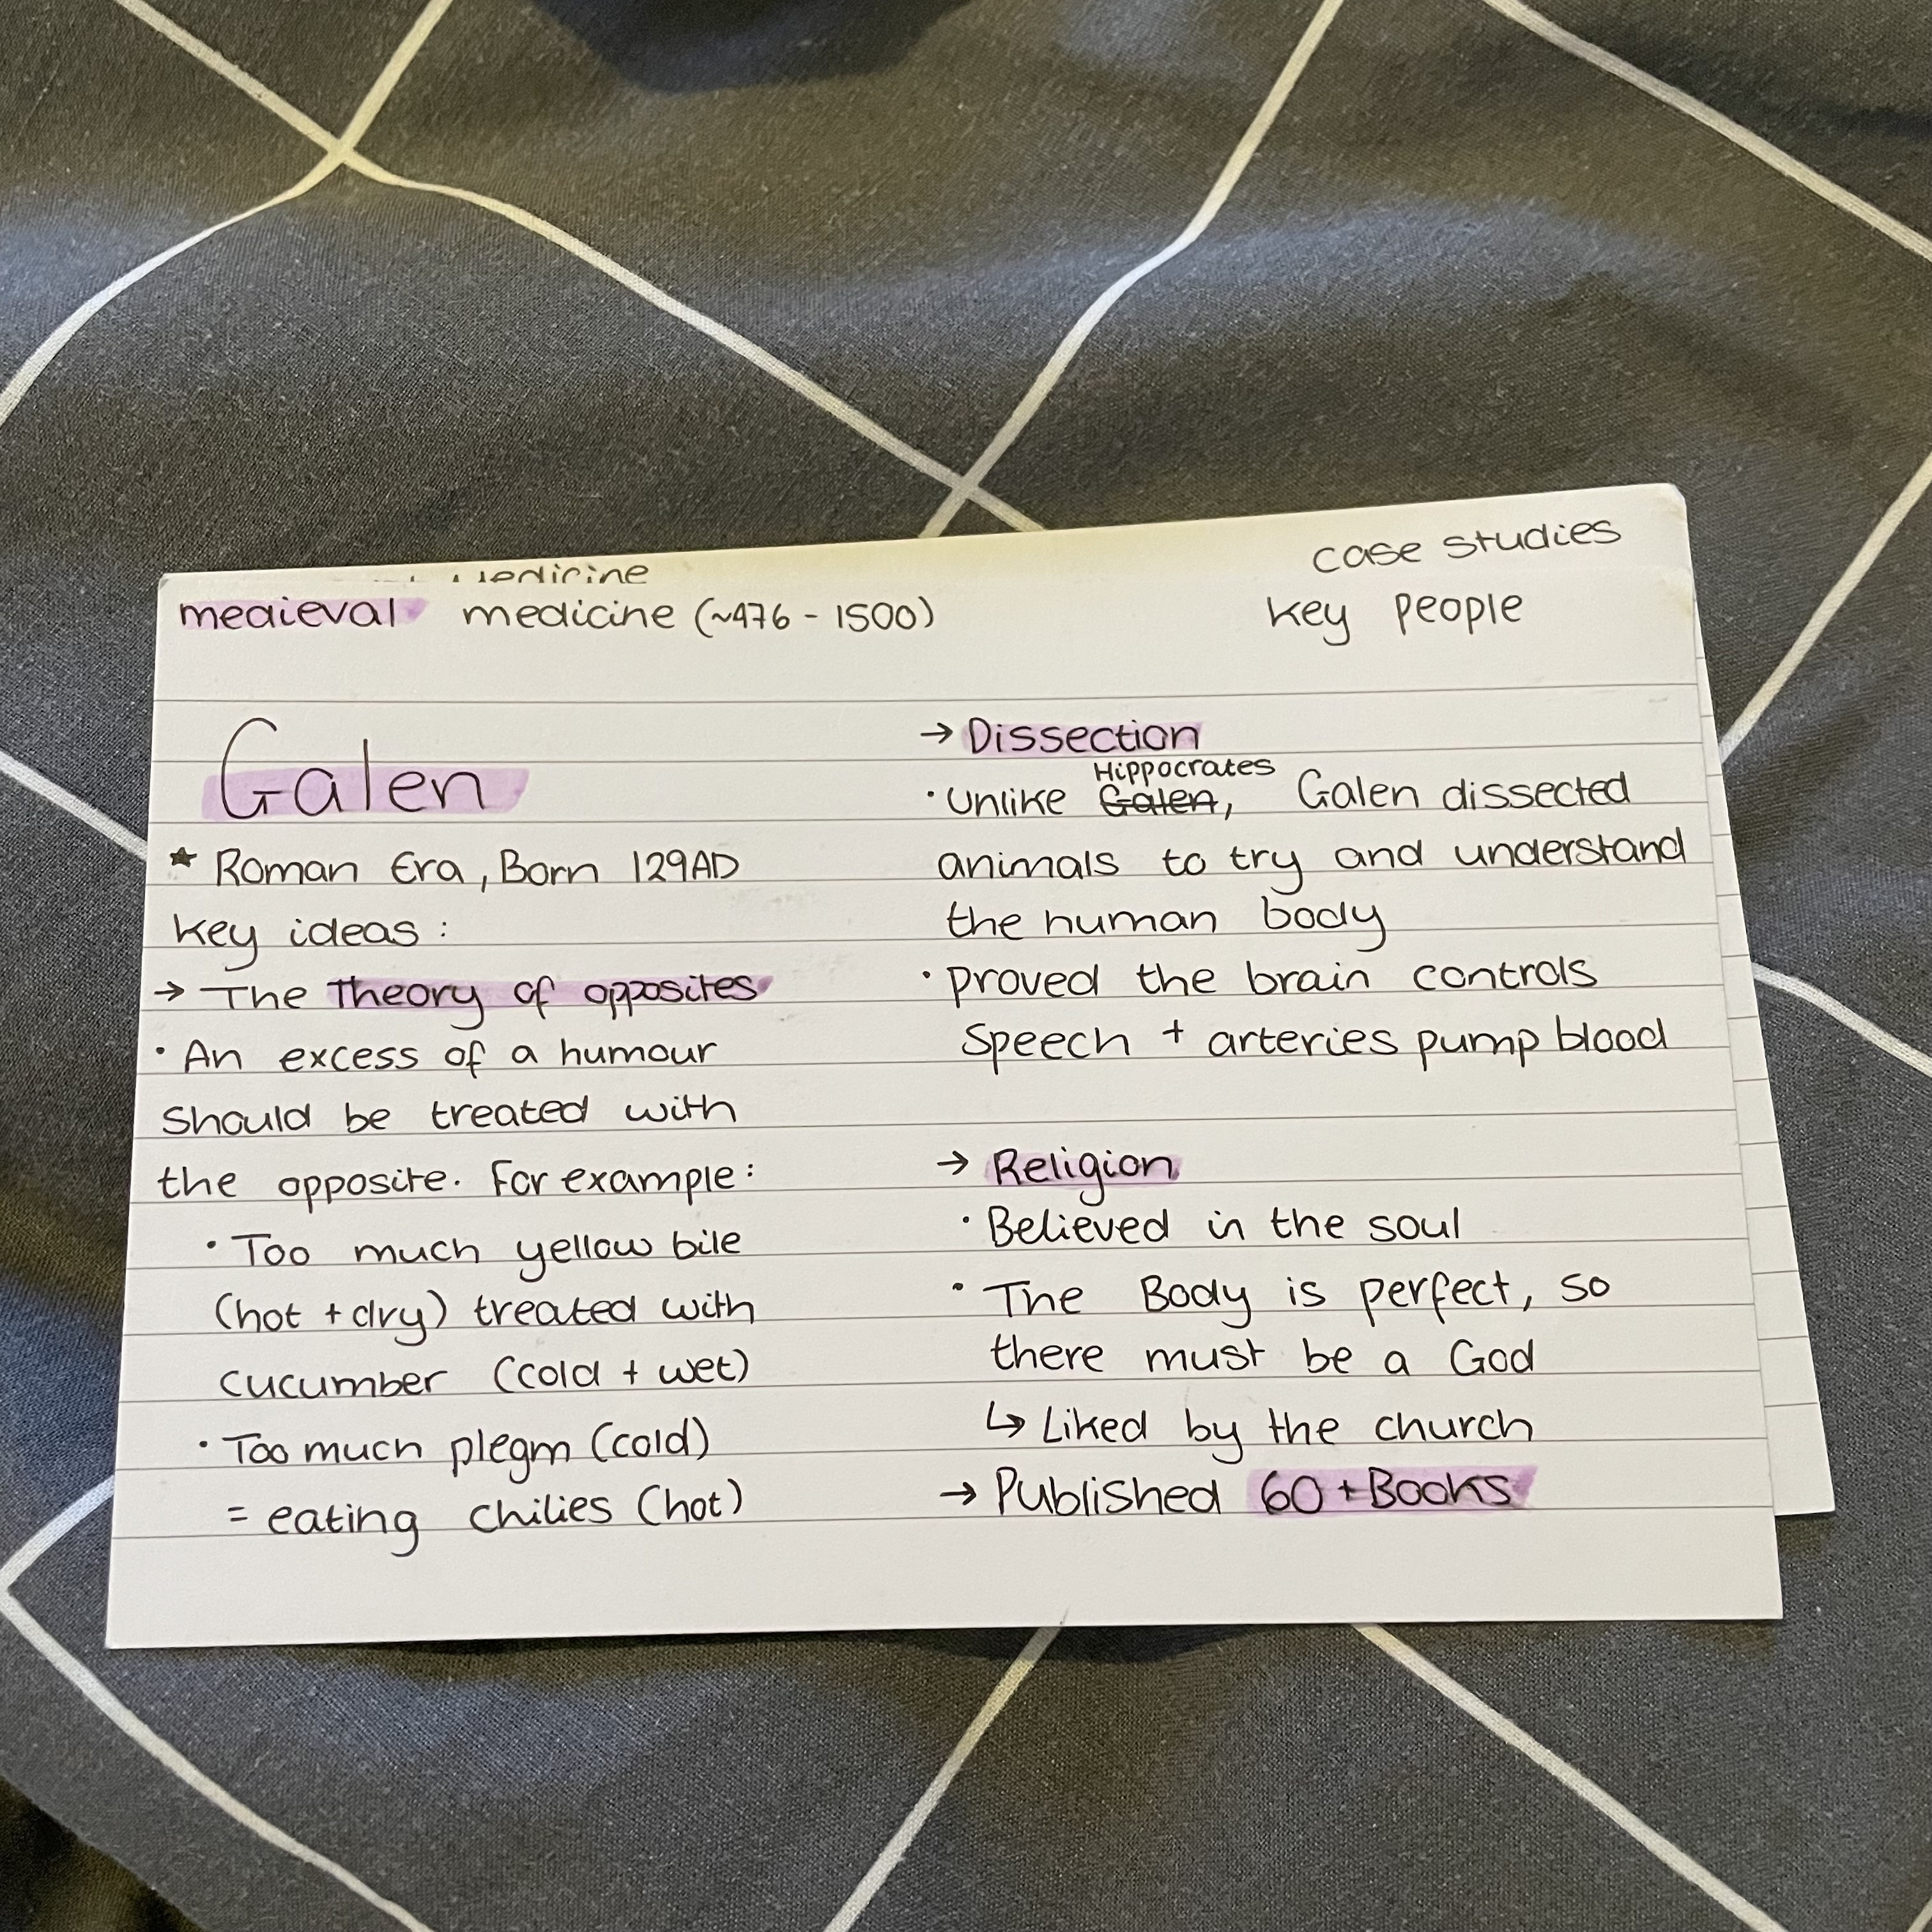 medicine
case studies
medieval medicine (~476 - 1500)
key people
Galen
★ Roman Era, Born 129AD
key ideas :
→ The Theory of opposites
· An excess of a humour
should be treated with
the opposite. For example:
· Too much yellow bile
(hot + dry) treated with
cucumber (cold + wet)
· Too much plegm (cold)
= eating chilies (hot)
→ Dissection
Hippocrates
· unlike Galen, Galen dissected
animals to try and understand
the human body
· proved the brain controls
speech + arteries pump blood
→ Religion
· Believed in the soul
· The Body is perfect, so
there must be a God
↳ Liked by the church
→ Published 60+ Books